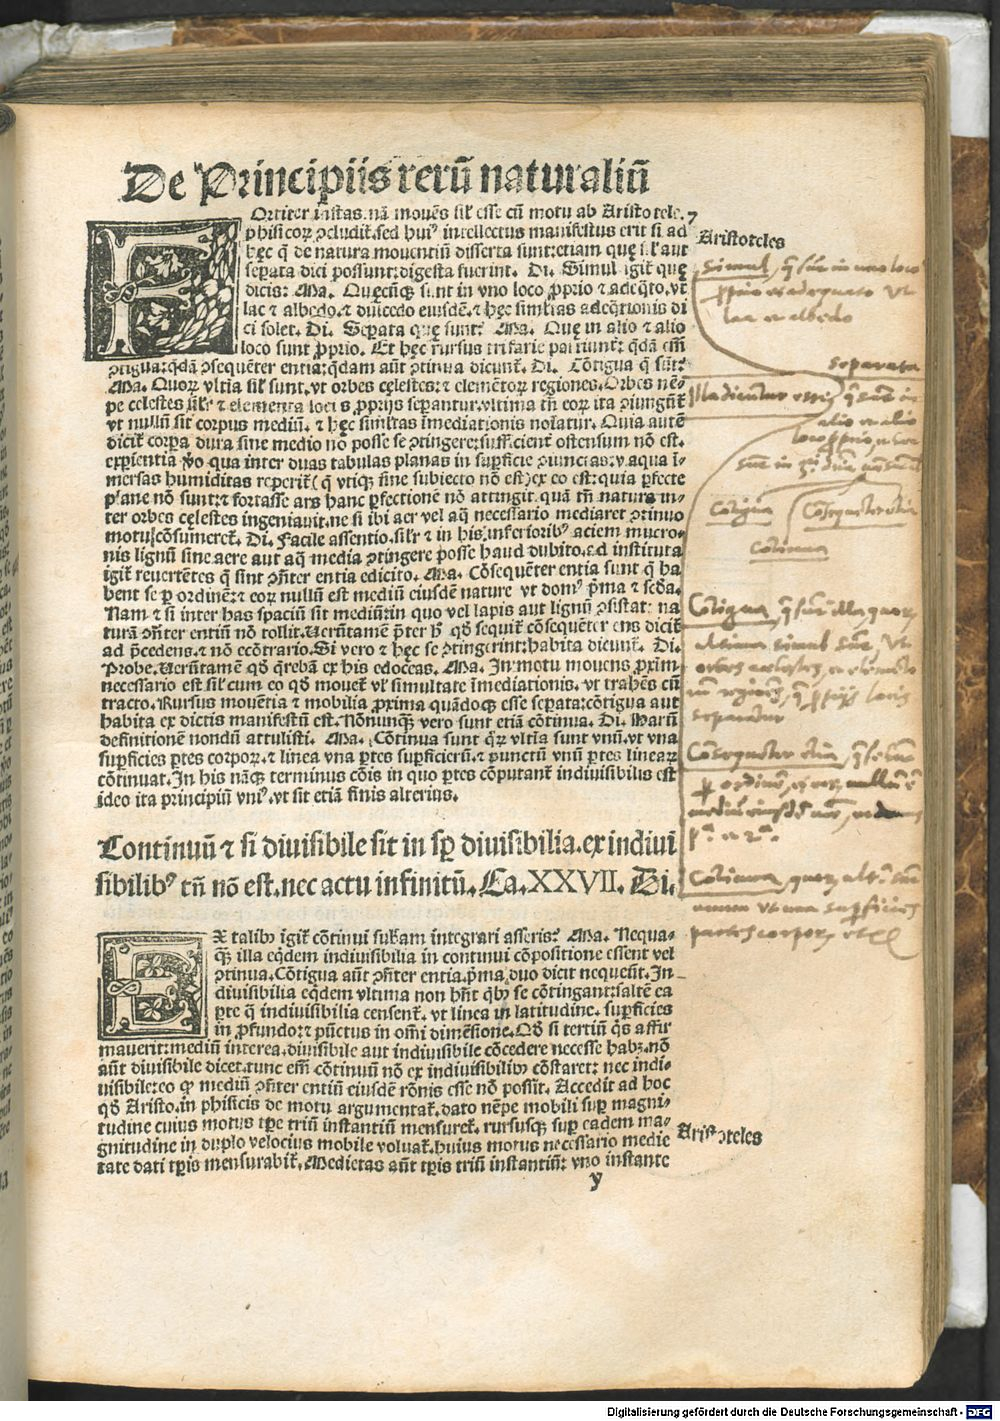 De Principiis rerū naturaliū
FOrtiter instas. nā mouēs sił esse cū motu ab Aristotele. 7
phisicoꝝ ꝯcludit̄. sed huiꝰ intellectus manifestus erit si ad
hęc q̄ de natura mouentiū disserta sunt: etiam quę sił aut
seꝑata dici possunt: digesta fuerint. Di. Simul igit̄ quę
dicis: Ma. Quęcūqꝫ sunt in vno loco ꝓprio ⁊ adeq̄to. vt
lac ⁊ albedo. ⁊ dulcedo eiusdē. ⁊ hęc simltas adeq̄tionis di
ci solet. Di. Seꝑata quę sunt: Ma. Quę in alio ⁊ alio
loco sunt ꝓprio. Et hęc rursus trifarie partiunt̄: qdā em̄
ꝯtigua: qdā ꝯsequēter entia: qdam aūt ꝯtinua dicunt̄. Di. Cōtigua q̄ sūt:
Ma. Quoꝝ vltīa sił sunt. vt orbes cęlestes: ⁊ elementoꝝ regiones. Orbes nē-
pe celestes silr ⁊ elementa locis ꝓprijs seꝑantur. vltima tn̄ eoꝝ ita ꝯiungūt̄
vt nullū sit corpus mediū. ⁊ hęc simltas imediationis noīatur. Quia autē
dicit̄ corpa dura sine medio nō posse se ꝯtingere: sufficient̄ ostensum nō est.
exꝑientia ꝟo qua inter duas tabulas planas in suꝑficie ꝯiunctas: vaqua ī-
mersas humiditas reperit̄ (q̄ vtiqꝫ sine subiecto nō est) ex eo est: quia ꝑfecte
plane nō sunt: ⁊ fortasse ars hanc ꝑfectionē nō attingit. quā tn̄ natura in-
ter orbes cęlestes ingeniauit. ne si ibi aer vel aq̄ necessario mediaret ꝯtinuo
motu cōsumeret̄. Di. Facile assentio. silr ⁊ in his inferioribꝰ aciem mucro-
nis lignū sine aere aut aq̄ media ꝯtingere posse haud dubito. Ad instituta
igit̄ reuertētes q̄ sint ꝯn̄ter entia edicito. Ma. Cōsequēter entia sunt q̄ ha
bent se ꝑ ordinē: ⁊ eoꝝ nullū est mediū eiusdē nature vt domꝰ pͥma ⁊ scd̄a.
Nam ⁊ si inter has spaciū sit mediū: in quo vel lapis aut lignū ꝯsistat: na
turā ꝯn̄ter entiū nō tollit. Verūtamē p̄ter hͦ qd̄ sequit̄ cōsequēter ens dicit̄
ad p̄cedens. ⁊ nō ecōtrario. Si vero ⁊ hęc se ꝯtingerint: habita dicunt̄. Di.
Probe. Verūtamē qd̄ q̄rebā ex his edoceas. Ma. In motu mouens ꝓxim̄
necessario est sił cum eo qd̄ mouet̄ vł simultate īmediationis. vt trahēs cū
tracto. Rursus mouētia ⁊ mobilia ꝓxima quādoqꝫ esse seꝑata: cōtigua aut
habita ex dictis manifestū est. Nōnunqꝫ vero sunt etiā cōtinua. Di. Harū
definitionē nondū attulisti. Ma. Cōtinua sunt q̄ꝝ vltīa sunt vnū. vt vna
suꝑficies ꝑtes corpoꝝ. ⁊ linea vna ꝑtes suꝑficierū. ⁊ punctū vnū ꝑtes lineaꝝ
cōtinuat. In his nāqꝫ terminus cōis in quo ꝑtes cōputant̄ indiuisibilis est
ideo ita principiū vniꝰ. vt sit etiā finis alterius.
Continuū ⁊ si diuisibile sit in sꝑ diuisibilia. ex indiui
sibilibꝰ tn̄ nō est. nec actu infinitū. Ca. XXVII. Di.
EX talibꝰ igit̄ cōtinui sub̄am integrari asseris: Ma. Nequa-
qꝫ illa eq̄dem indiuisibilia in continui cōpositione essent vel
ꝯtinua. Cōtigua aūt ꝯn̄ter entia. pͥma duo dicit nequeūt. In-
diuisibilia eq̄dem vltima non hn̄t qͥbꝰ se cōtingant: saltē ea
ꝑte q̄ indiuisibilia censent̄. vt linea in latitudine. suꝑficies
in ꝓfundo: ⁊ pūctus in om̄i dimēsione. Qd̄ si tertiū qͥs affir
mauerit: mediū interea. diuisibile aut indiuisibile cōcedere necesse habꝫ. nō
aūt diuisibile dicet. tunc em̄ cōtinuū nō ex indiuisibilibꝰ cōstaret: nec indi-
uisibile: eo qꝫ mediū ꝯn̄ter entiū eiusdē rōnis esse nō possit. Accedit ad hoc
qd̄ Aristo. in phisicis de motu argumentat̄. dato nēpe mobili suꝑ magni-
tudine cuius motus tꝑe triū instantiū mensuret̄. rursusqꝫ suꝑ eadem ma-
gnitudine in duplo velocius mobile voluat̄. huius motus necessario medie
tate dati tꝑis mensurabit̄. Medietas aūt tꝑis triū instantiū: vno instante
y
Aristoteles
Simul, q̄ sūt in uno loco
ꝓprio et adequato Ut
lac et albedo
Separata
dicuntur esse, q̄ sūt in
alio et alio
loco ꝓprio
Cōtigua
Cōsequēter etiā
Cōtinua
Cōtigua, q̄ sūt illa, quoꝝ
ultima simul sūt, Ut
orbes celestes, et elemēto
rū regiones, q̄ ꝓprijs locis
separantur
Consequēter etiā, q̄ se hn̄t
ꝑ ordinē, et eoꝝ nullum ē
medium eiusdē nature, ut domus
pͣ et 2ͣ.
Cōtinua, quoꝝ ult̄a sūt
unum ut una suꝑficies
partes corpoꝝ etc̄
Aristoteles
Digitalisierung gefördert durch die Deutsche Forschungsgemeinschaft - DFG